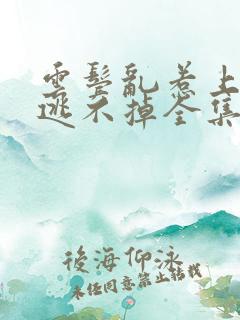 雲鬓亂惹上
逃不掉全集
後海仰泳
未经同意禁止转载